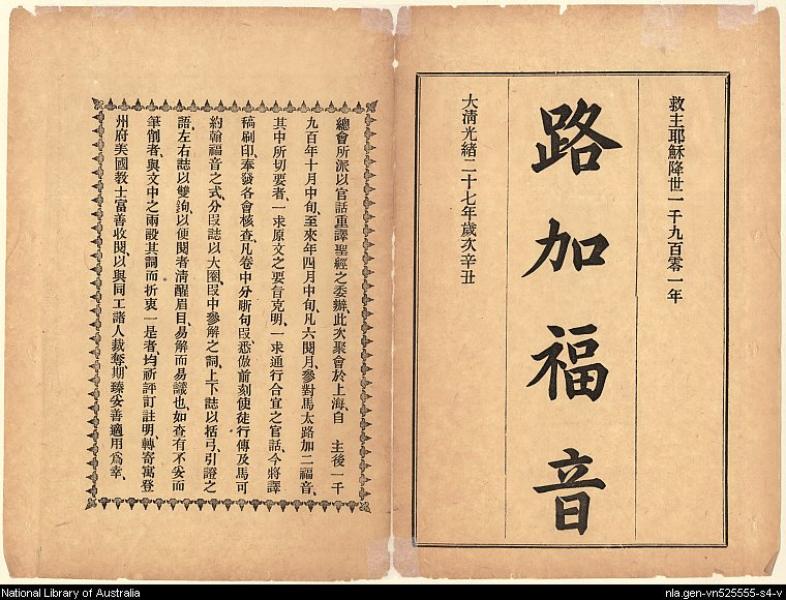 救主耶穌降世一千九百零一年
路加福音
大淸光緒二十七年歲次辛丑
總會所派以官話重譯聖經之委辦、此次聚會於上海、自　主後一千
九百年十月中旬、至來年四月中旬、凡六閱月、參對馬太路加二福音、
其中所切要者、一求原文之要旨克明、一求通行合宜之官話、今將譯
稿刷印、奉發各會核査、凡卷中分斷句段、悉倣前刻使徒行傳及馬可
約翰福音之式、分段誌以大圈、段中參解之詞、上下誌以括弓、引證之
語、左右誌以雙鉤、以便閱者淸醒眉目、易解而易識也、如查有不妥而
筆削者、與文中之兩設其詞而折衷一是者、均祈評訂註明、轉寄寓登
州府美國敎士富善收閱、以與同工諸人裁奪、期臻妥善適用爲幸、
National Library of Australia
nla.gen-vn525555-s4-v